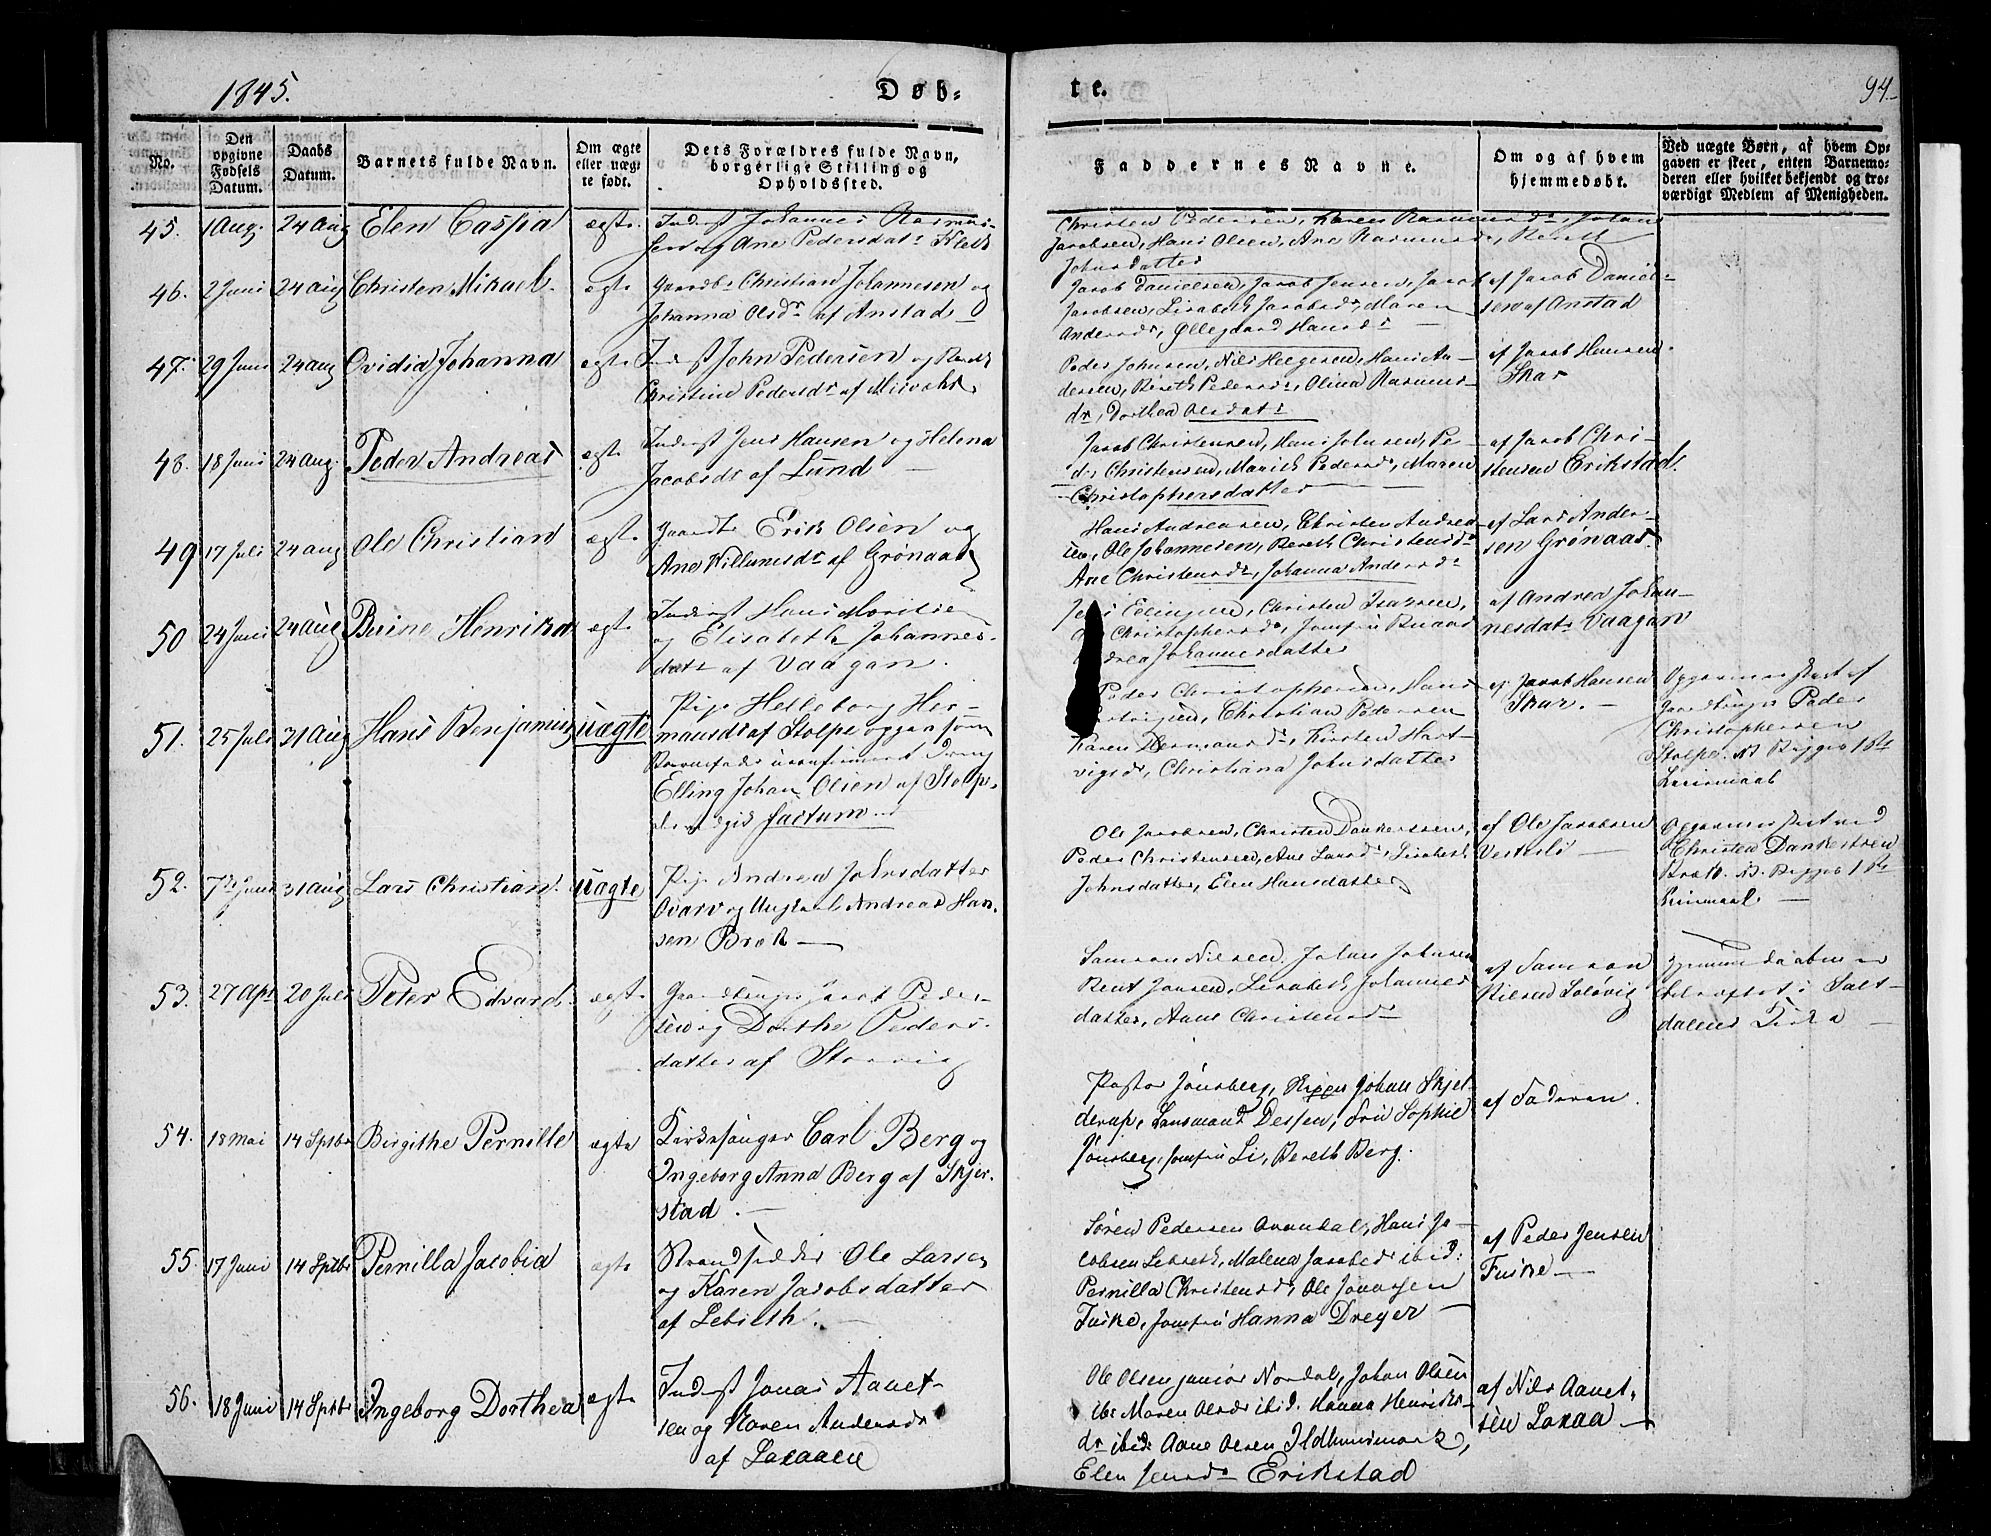 1845.
Døb-
te.
94
No.
Den
opgivne
Fødsels
Datum.
Daabs
Datum.
Barnets fulde Navn.
Om ægte
eller uæg-
te født.
Dets Forældres fulde Navn,
borgerlige Stilling og
Opholdssted.
Faddernes Navne.
Om og af hvem
hjemmedøbt.
Ved uægte Børn, af hvem Op-
gaven er skeet, enten Barnemo-
deren eller hvilket bekjendt og tro-
værdigt Medlem af Menigheden.
45. 1 Aug. 24 Aug Elen Caspia ægte
Inderst Johannes Rasmus-
sen og Ane Pedersdatr
Christen Pedersen, Karen Rasmusdr, Johan
Jacobsen, Hans Olsen, Ane Rasmusdr, Bereth
Johnsdatter
46. 2 Juni 24 Aug Christen Mikael ægte
Gaardbr Christian Johannesen og
Johanna Olsdr af Anstad
Jacob Danielsen, Jacob Jensen, Jacob
Jacobsen, Lisabeth Jacobsdr, Maren
Andersdr, Øllegaard Hansdr
af Jacob Daniel-
sen af Anstad
47. 29 Juni 24 Aug Ovidia Johanna ægte
Inderst John Pedersen og
Christine Pedersdr af
Peder Johnsen, Nils Helgesen, Hans An-
dersen, Bereth Pedersdr, Olina Rasmus-
dr, Dorthea Olsdatr
af Jacob Hansen
Skar
48. 18 Juni 24 Aug. Peder Andreas ægte
Inderst Jens Hansen og Helena
Jacobsdr af Lund
Jacob Christensen, Hans Johnsen, Pe-
dr Christensen, Marith Pedersdr, Maren
Christophersdatter
af Jacob Chri-
stensen Erikstad.
49 17 Juli 24 Aug Ole Christian ægte
Gaardbr Erik Olsen og
Ane Willumsdr af Grønaas
Hans Andreasen, Christen Andrea-
sen, Ole Johannesen, Bereth Christensdr
Ane Christensdr, Johanna Andersdr
af Lars Ander-
sen Grønaas.
50 24 Juni 24 Aug Berine Henrika ægte
Inderst Hans Moritsen
og Elisabeth Johannes-
datr af Vaagan.
Jens Ellingsen, Christen Isaksen,
Christophersdr, Jomfru
Andrea Johannesdatter
af Andrea Johan-
nesdatr Vaagan
51. 25 Juli 31 Aug Hans Benjamin uægte
Pige Helleborg Her-
mansdr af Stolpe opgav som
Barnefader uconfirmert Dreng
Elling Johan Olsen af Stolpe
factum
Peder Christophersen, Hans
Christian Pedersen
Karen Hermansdr, Kirsten Hart-
vigsdr, Christiana Johnsdatter
af Jacob Hansen
Skar.
Opgaven skeet af
Peder
Christophersen
Stolpe.
Leiermaal
52. 7de Juni 31 Aug Lars Christian. uægte
Pige Andrea Johnsdatter
Qvarv og Ungkarl Andreas Han-
sen Bræk
Ole Jacobsen, Christen Dankertsen,
Peder Christensen, Ane Larsdr, Lisabeth
Johnsdatter, Elen Hansdatter
af Ole Jacobsen
Vestersli
Opgaven skeet ved
Christen Dankertsen
Bræk.
Leiermaal.
53. 27 Apr 20 Juli Peter Edvard ægte
Jacob Peder-
sen og Dorthe Peders-
datter af Storvig
Samson Nilsen, Johns Johnsen
Bent Jensen, Lisabeth Johannes
datter, Aane Christensdr
af Samson
Nilsen Soløvig
Hjemmedaaben er
bekræftet i Salt-
dalens Kirke
54. 18 Mai 14 Sptbr Birgithe Pernille ægte
Kirkesanger Carl Berg og
Ingeborg Anna Berg af Skjer-
stad.
Pastor Jønsberg, Johan Skjel-
derup, Lensmand Dessen, Fru Sophie
Jønsberg, Jomfru Li, Bereth Berg.
af Faderen.
55. 17 Juni 14 Sptbr Pernilla Jacobia ægte
Strandsidder Ole Larsen
og Karen Jacobsdatter
af Lebseth.
Søren Pedersen, Hans Ja-
cobsen Lebseth, Malena Jacobsdr ibid:
Pernilla Christensdr, Ole Jonassen
Fuske, Jomfru Hanna Dreyer
af Peder Jensen
Fuske
56. 18 Juni 14 Sptbr Ingeborg Dorthea ægte
Inderst Jonas Aanet-
sen og Karen Andersdr
af Laxaaen
Ole Olsen junior Nordal, Johan Olsen
ibd Maren Olsdr ibid. Hanna Henriks-
dr ibid: Aane Olsen Ildhusmark,
Elen Jensdr Erikstad
af Nils Aanet-
sen Laxaa